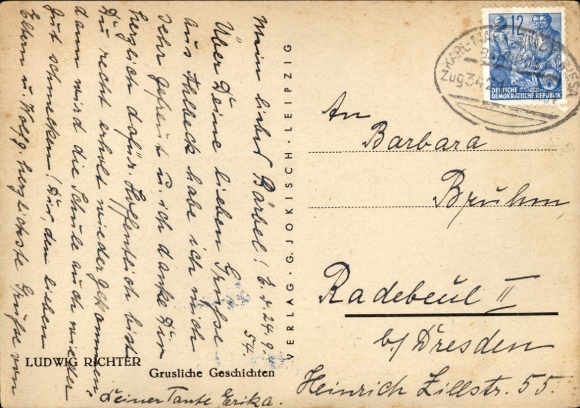 Mein liebes Bärbel! 24.9.54.
Über Deine lieben Grüße
aus habe ich mich
sehr gefreut u. ich danke Dir
herzlich dafür. Hoffentlich bist
Du recht erholt wiedergekommen,
dann wird die Schule auch wieder
gut schmecken! Dir, den lieben
Eltern u. Wolfg. herzlichste Grüße von
Deiner Tante Erika.
LUDWIG RICHTER
Grusliche Geschichten
VERLAG · G. JOKISCH · LEIPZIG
12
DEUTSCHE
DEMOKRATISCHE REPUBLIK
KARL-MARX-
Zug 342
An
Barbara
Bruhm
Radebeul II
b/Dresden
Heinrich Zillstr. 55.